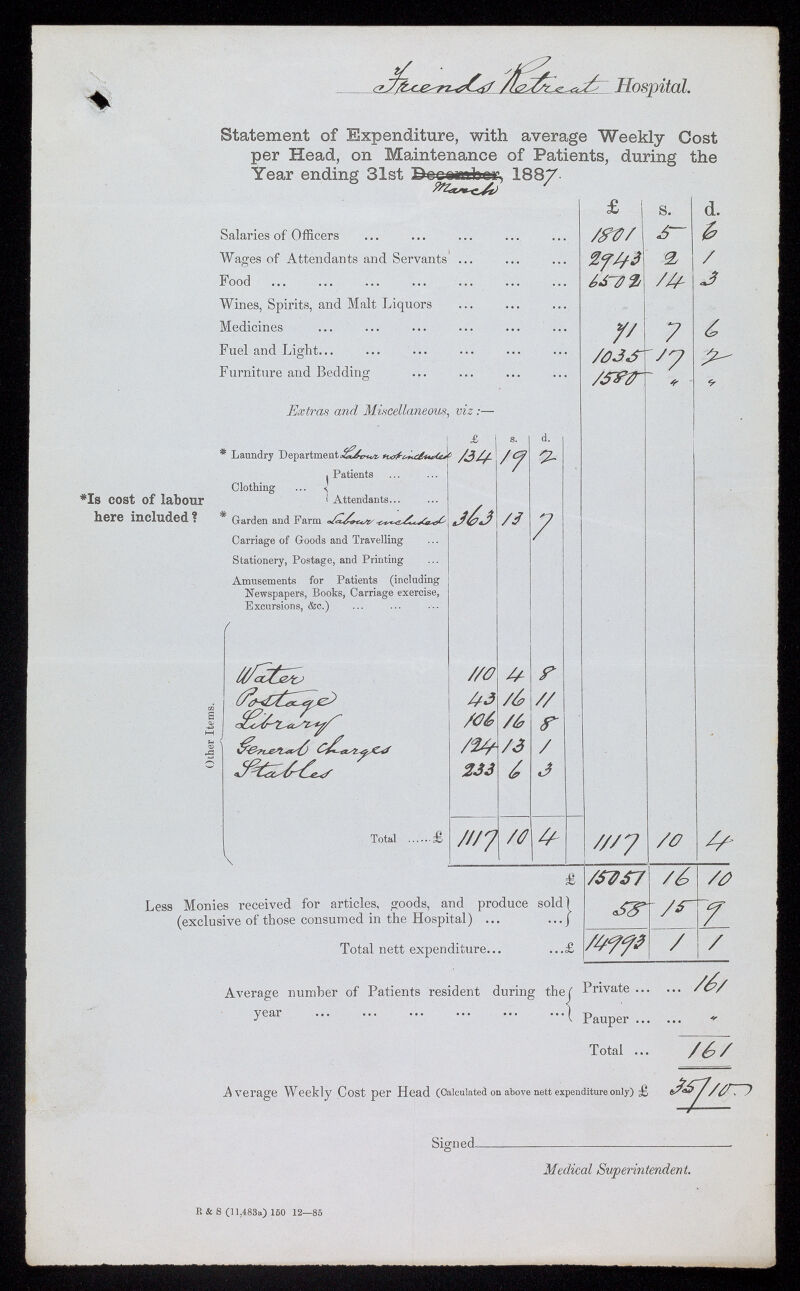 Friends' Retreat Hospital.
Statement of Expenditure, with average Weekly Cost
per Head, on Maintenance of Patients, during the
Year ending 31st December, 1887.
March
£ s. d.
Salaries of Officers ... ... ... ... ... 1801 5 6
Wages of Attendants and Servants ... ... ... 2943 2 1
Food ... ... ... ... ... ... ... 6502 14 3
Wines, Spirits, and Malt Liquors ... ... ...
Medicines ... ... ... ... ... ... 71 7 6
Fuel and Light... ... ... ... ... ... 1035 17 2
Furniture and Bedding ... ... ... ... 1580 " "
Extras and Miscellaneous, viz :—
£ s. d.
* Laundry Department Labour not included 134 19 2
Clothing ... { Patients ... ...
Attendants... ...
*Is cost of labour
here included?
* Garden and Farm Labour included 363 13 7
Carriage of Goods and Travelling ...
Stationery, Postage, and Printing ...
Amusements for Patients (including
Newspapers, Books, Carriage exercise,
Excursions, &c.) ... ... ...
Other Items.
Water 110 4 8
Postage 43 16 11
Library 106 16 8
General Charges 124 13 1
Stables 233 6 3
Total ...... £ 1117 10 4 1117 10 4
£ 15051 16 10
Less Monies received for articles, goods, and produce sold }
(exclusive of those consumed in the Hospital) ... ... } 58 15 9
Total nett expenditure... ...£ 14993 1 1
Average number of Patients resident during the { Private ... ... 161
year ... ... ... ... ... ... { Pauper ... ... "
Total ... 161
Average Weekly Cost per Head (Calculated on above nett expenditure only) £ 35/10.
Signed
Medical Superintendent.
R & S (11,483a) 150 12—85